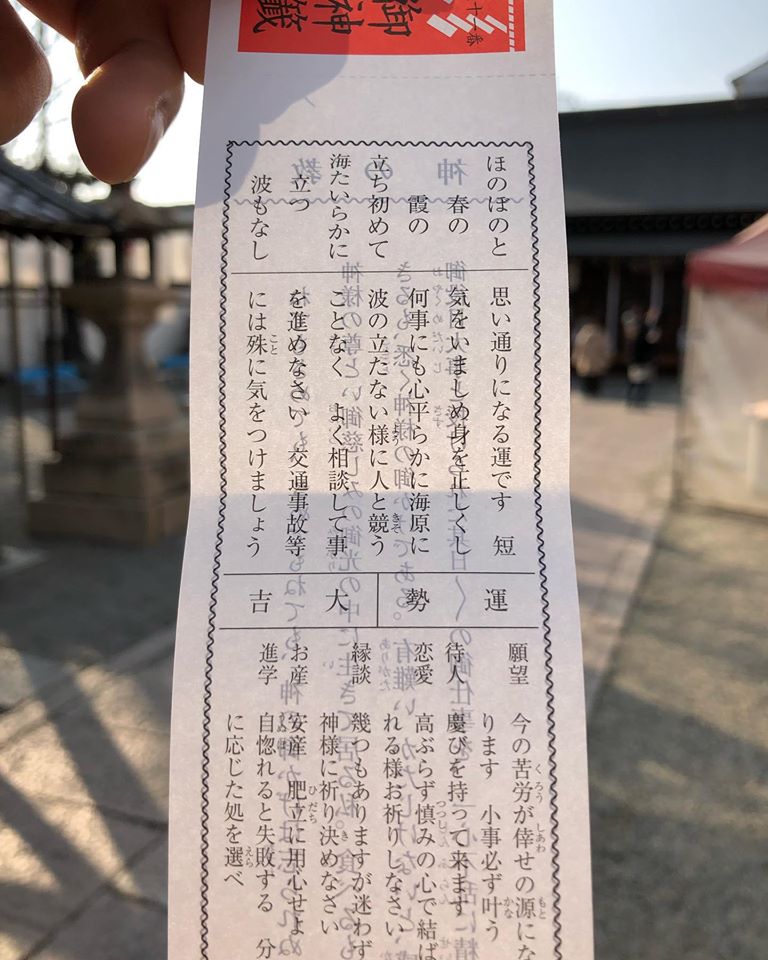 御神籤
ほのぼのと
春の
霞の
立ち初めて
海たいらかに
立つ
波もなし
思い通りになる運です 短
気をいましめ身を正しくし
何事にも心平らかに海原に
波の立たない様に人と競う
ことなく よく相談して事
を進めなさい 交通事故等
には殊に気をつけましょう
運勢 大吉
願望 今の苦労が倖せの源にな
ります 小事必ず叶う
待人 慶びを持って来ます
恋愛 高ぶらず慎みの心で結ば
れる様お祈りしなさい
縁談 幾つもありますが迷わず
神様に祈り決めなさい
お産 安産 肥立に用心せよ
進学 自惚れると失敗する 分
に応じた処を選べ